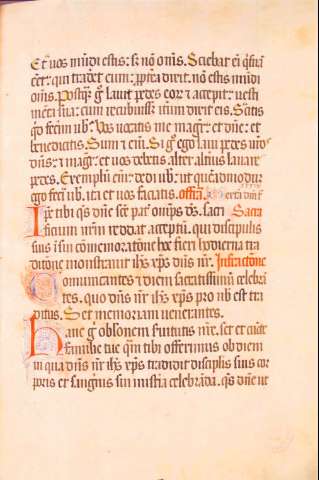 Et vos mūdi estis: s; nō oms. Sciebat em q̄snā
eēt: qui tradet eum: p̄pterea dixit. nō estis mūdi
oms. Postq̄m g̊ lauit pedes eoꝝ ⁊ accepit: uesti
menta sua: cum recubuisset: iteꝝ dixit eis. Scitis
qd fecim ubꝰ: Vos uocatis me magr: ⁊ dne: et
benedicitis. Sum ⁊ em. Si g̊ ego laui pedes uros
dns: ⁊ magr: et vos debetis. alter alterius lauare
pedes. Exemplū em: dedi ubꝰ: ut quēadmodum
ego feci ubꝰ. ita et vos faciatis. offitā. dextera dnī
Ipe tibi qs dne sce pat omps ds. sacri Secreta
ficium nrm reddat acceptū. qui discipulis
suis i sui cōmemoratione hoc fieri hodierna tra
ditōne monstrauit ihs xps dns nr. Infractione
Comunicantes ⁊ diem sacratissimū celebrā
tes. quo dns nr ihs xps pro nb est tra
ditus. Set memoriam uenerantes.
Hanc g̊ oblonem seruitutis nre. set et cūcte
familie tue qm tibi offerimus ob diem
in qua dns nr ihs xps tradidit discipulis suis cor
poris et sanguīs sui misteria celebrāda. qs dne ut